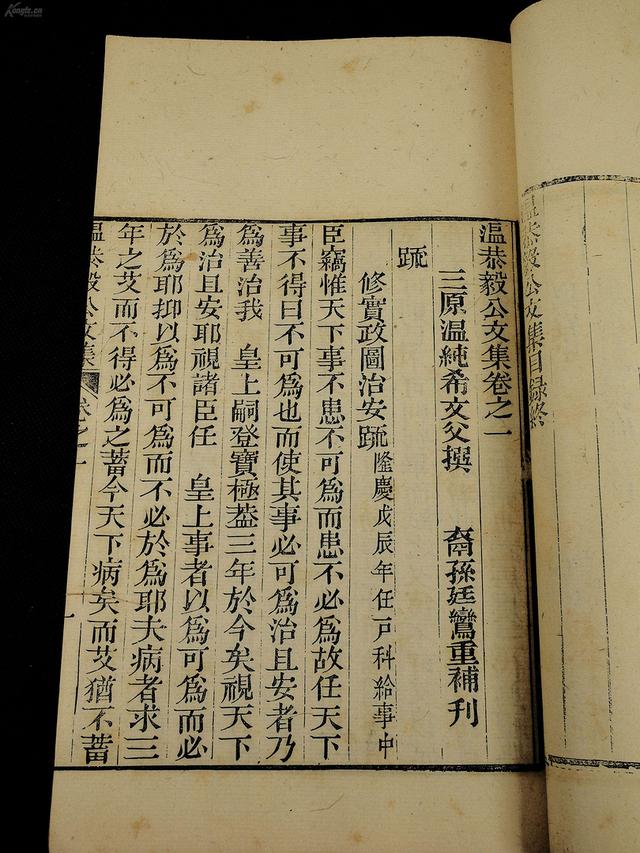 Kongfz.cn
溫恭毅公文集目錄終
溫恭毅公文集卷之一
三原溫純希文父撰　裔孫廷鸞重補刊
疏
修實政圖治安疏隆慶戊辰年任戶科給事中
臣竊惟天下事不患不可為而患不必為故任天下
事不得曰不可為也而使其事必可為治且安者乃
為善治我　皇上嗣登寶極葢三年於今矣視天下
為治且安耶視諸臣任　皇上事者以為可為而必
於為耶抑以為不可為而不必於為耶夫病者求三
年之艾而不得必為之蓄今天下病矣而艾猶不蓄
溫恭毅公文集　卷之一　一